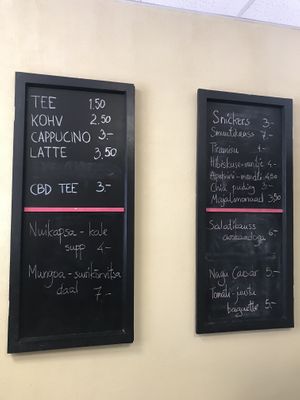 TEE 1.50
KOHV 2,50
CAPPUCINO 3.-
LATTE 3,50
CBD TEE 3.-
Nuikapsa - kale
supp 4.-
Mungoa - suvikõrvitsa
daal 7.-
Snickers 3.-
Smuutikauss 7.-
Tiramisu 4.-
Hibiskuse - 4.-
Apelsini - mandli 4,50
Chia puding 3.-
3,50
Salatikauss
avokaadoga 6.-
Nugu Caesar 5.-
Tomati - juustu
baguette 5.-